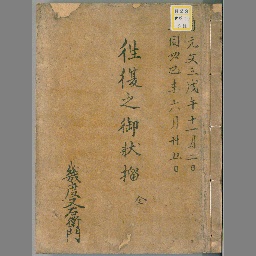 元文三戊年十一月二日
同四己未六月廿五日
往復之御状留
全
幾度又右衛門